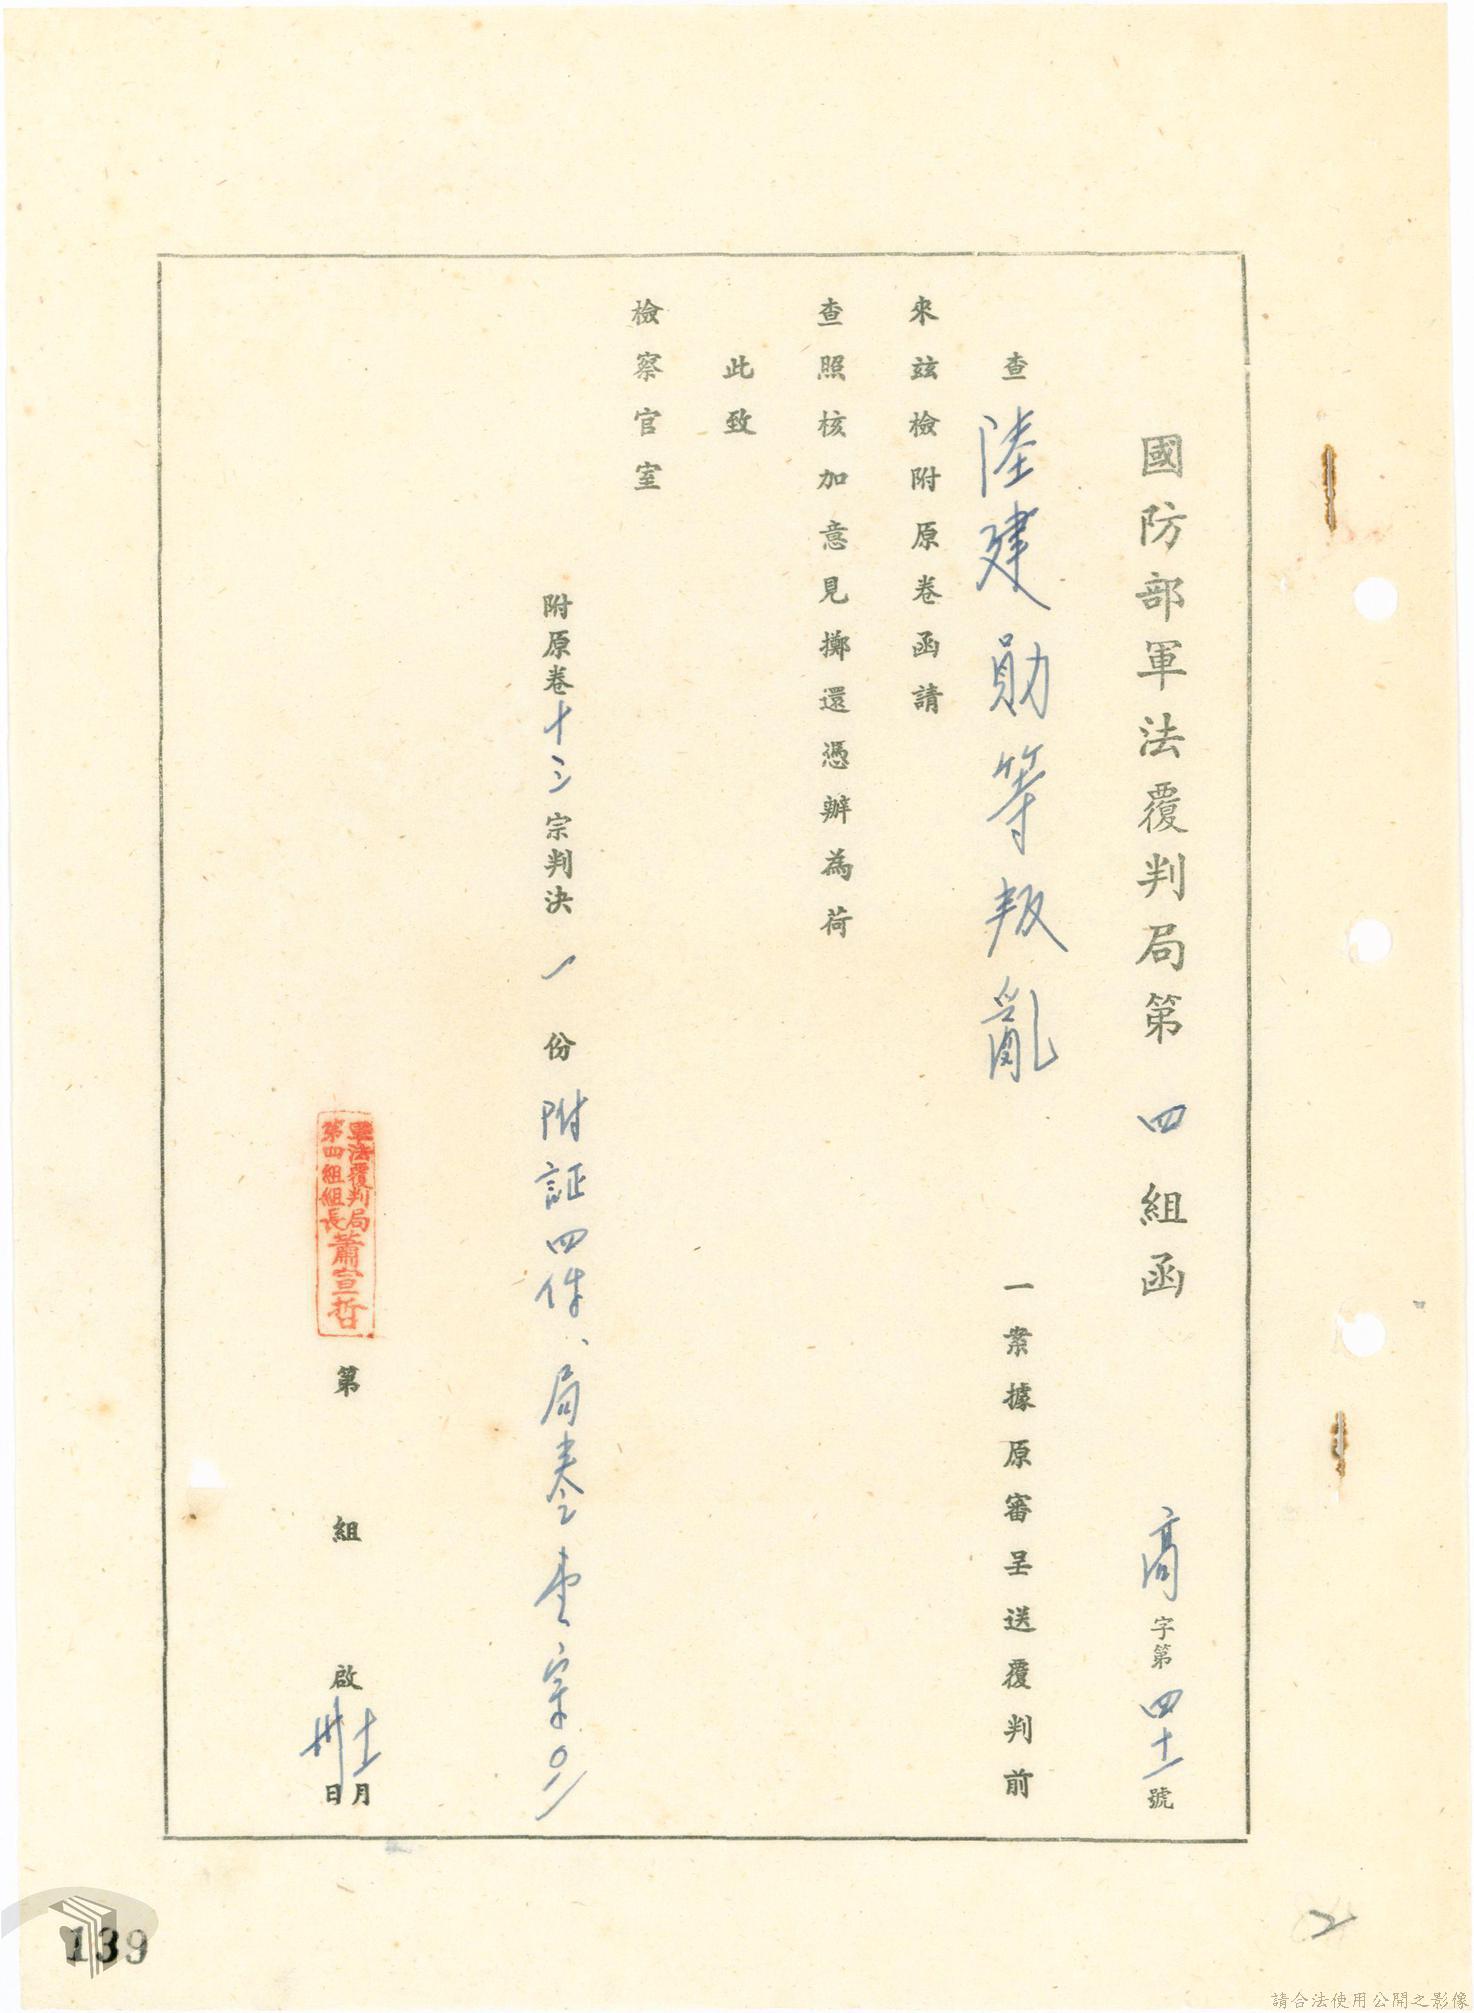 國防部軍法覆判局第四組函 高字第四十一號
查陸建勛等叛亂一案據原審呈送覆判前
來茲檢附原卷函請
查照核加意見擲還憑辦為荷
此致
檢察官室
附原卷十三宗判決一份附証四件、局卷壹宗
軍法覆判局
第四組組長
蕭宣哲
第 組 啟
月
日
139
請合法使用公開之影像